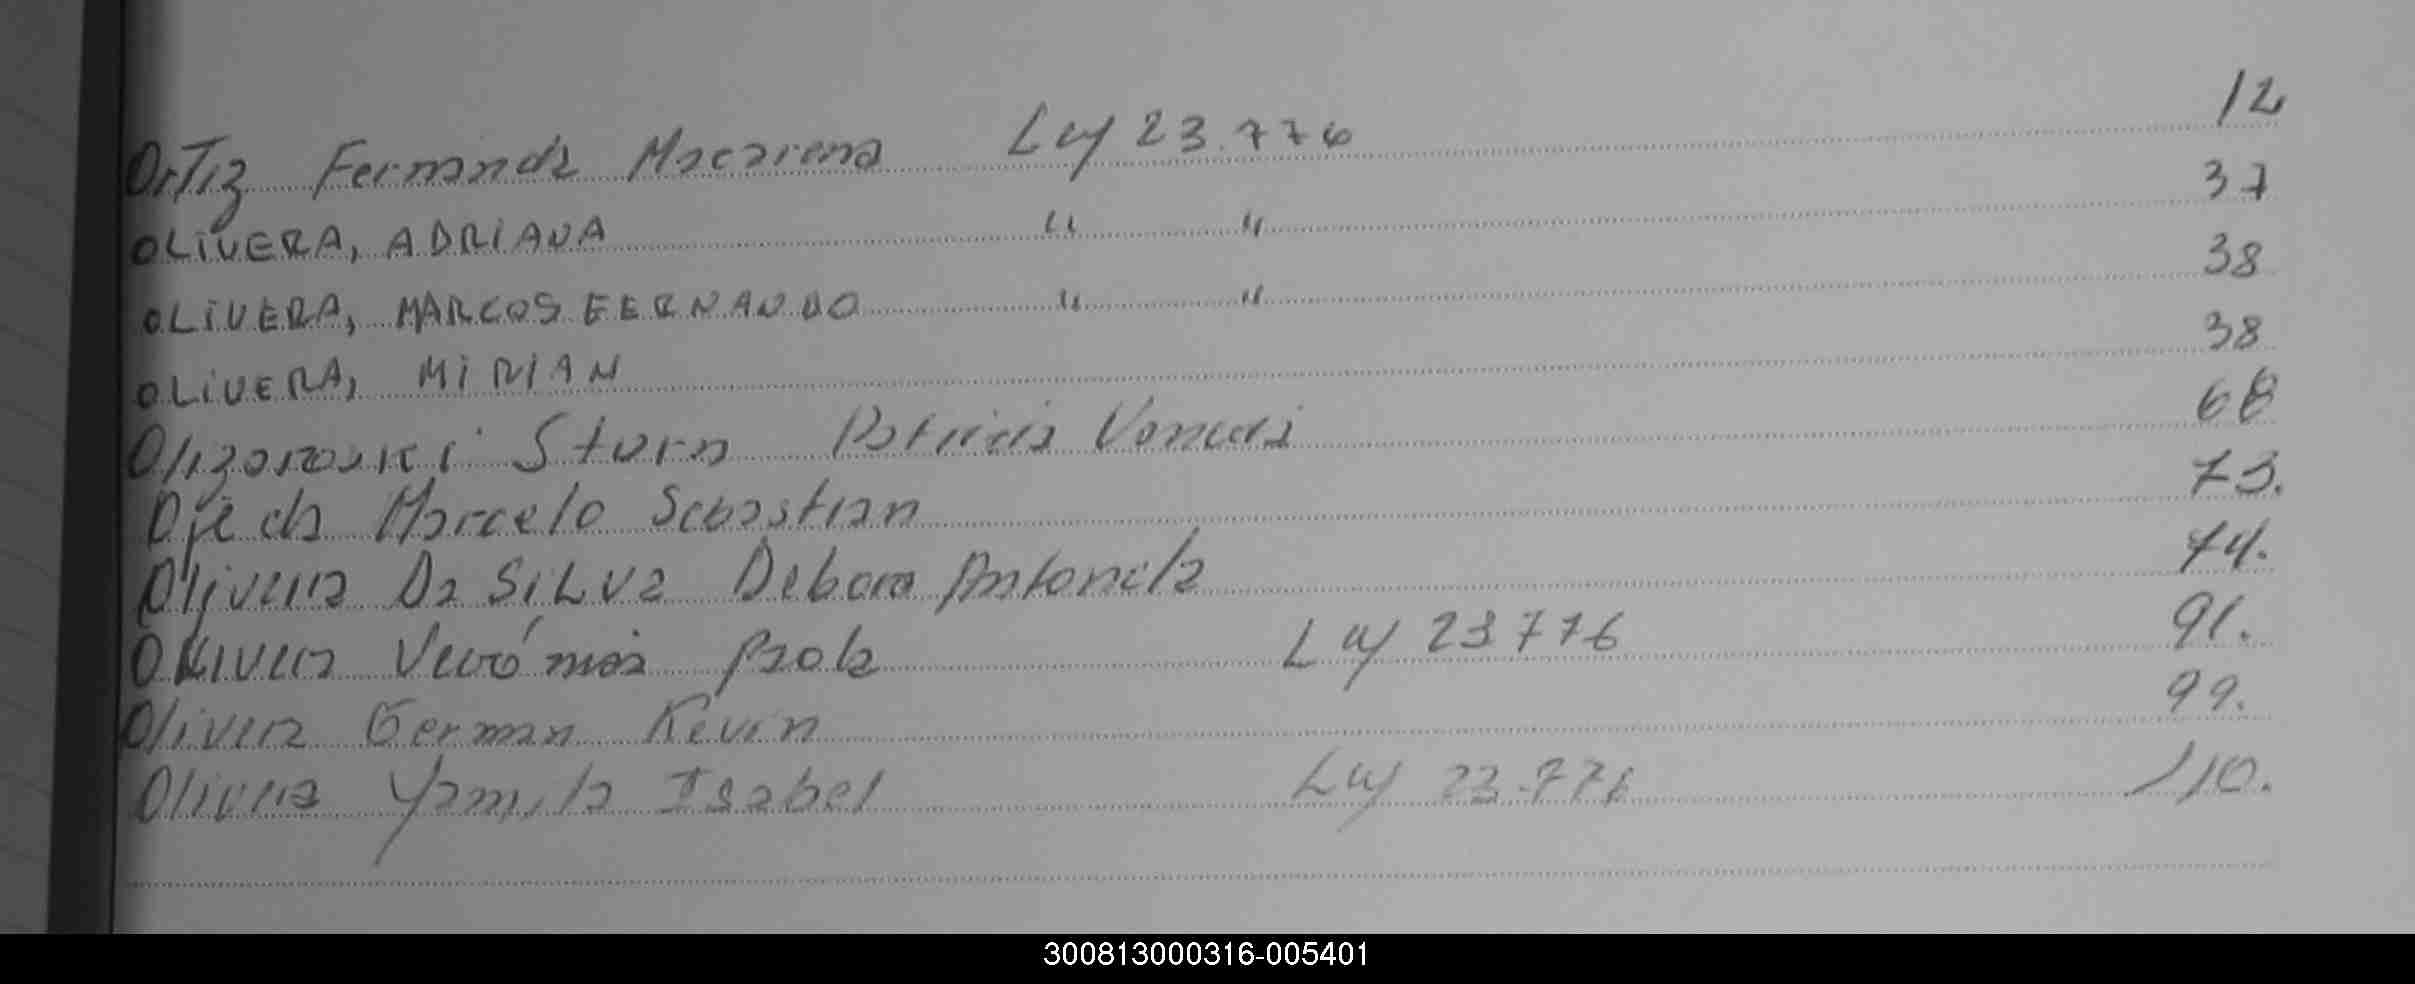 Ortiz Fernanda Macarena Ley 23.776 12
OLIVERA, ADRIANA " " 37
OLIVERA, MARCOS FERNANDO " " 38
OLIVERA, MIRIAN 38
Sturn Patricia 68
Ojeda Marcelo Sebastian 73.
Olivera Da SiLVa Debora Antonela 74.
Olivera Verónica Paola Ley 23776 91.
Olivera German Kevin 99.
Olivera Yamila Isabel Ley 23.776 110.
300813000316-005401